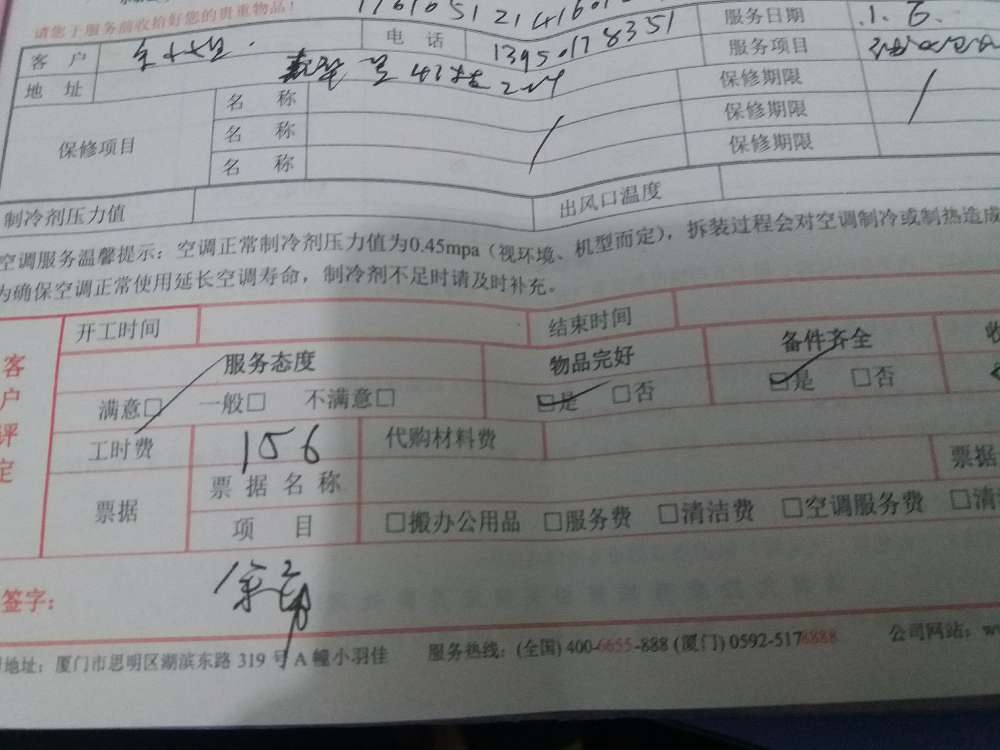 请您于服务前收拾好您的贵重物品！
客 户 电 话 13950178351 服务日期 1.6.
地 址 服务项目
保修项目 名 称 保修期限
名 称 保修期限
名 称 保修期限
制冷剂压力值 出风口温度
空调服务温馨提示：空调正常制冷剂压力值为0.45mpa（视环境、机型而定），拆装过程会对空调制冷或制热造成
为确保空调正常使用延长空调寿命，制冷剂不足时请及时补充。
客户评定 开工时间 结束时间
服务态度 物品完好 备件齐全
满意□ 一般□ 不满意□ □是 □否 □是 □否
工时费 156 代购材料费
票据 票 据 名 称 票据
项 目 □搬办公用品 □服务费 □清洁费 □空调服务费 □清
签字：
地址：厦门市思明区湖滨东路 319 号 A 幢小羽佳 服务热线：(全国) 400-6655-888 (厦门) 0592-5178888 公司网站：